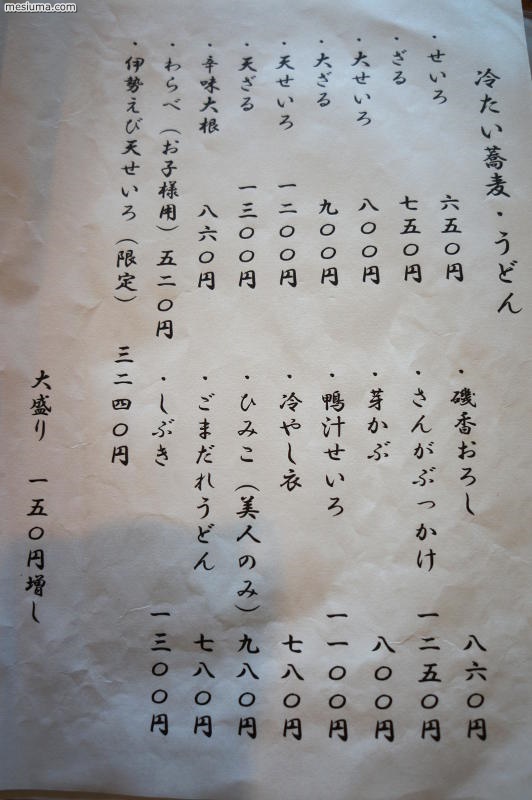 mesiuma.com
冷たい蕎麦・うどん
・せいろ 六五〇円
・ざる 七五〇円
・大せいろ 八〇〇円
・大ざる 九〇〇円
・天せいろ 一二〇〇円
・天ざる 一三〇〇円
・辛味大根 八六〇円
・わらべ(お子様用)五二〇円
・伊勢えび天せいろ(限定) 三二四〇円
・磯香おろし 八六〇円
・さんがぶっかけ 一二五〇円
・芽かぶ 八〇〇円
・鴨汁せいろ 一一〇〇円
・冷やし衣 七八〇円
・ひみこ(美人のみ)九八〇円
・ごまだれうどん 七八〇円
・しぶき 一三〇〇円
大盛り 一五〇円増し